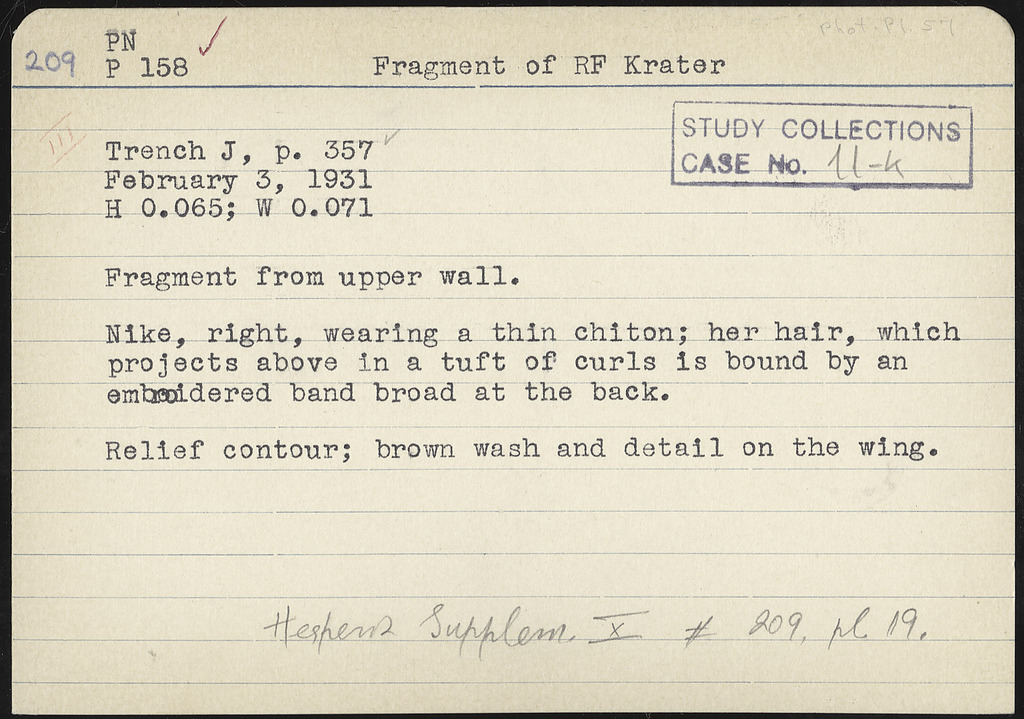 PN
209 P 158 Fragment of RF Krater
III
Trench J, p. 357
February 3, 1931
H 0.065; W 0.071
STUDY COLLECTIONS
CASE No. 11-K
Fragment from upper wall.
Nike, right, wearing a thin chiton; her hair, which
projects above in a tuft of curls is bound by an
embroidered band broad at the back.
Relief contour; brown wash and detail on the wing.
Supplem. X # 209, pl. 19.